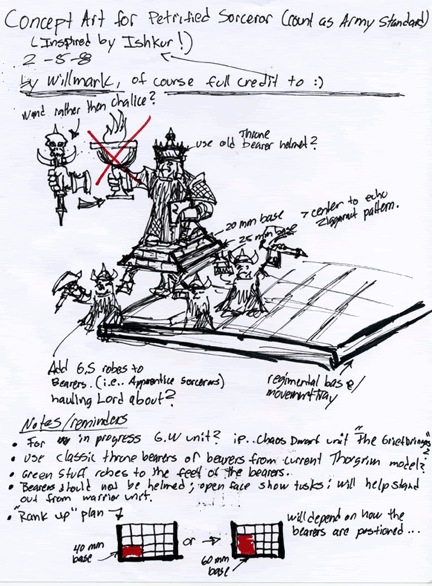 Concept Art for Petrified Sorceror (count as Army Standard)
(Inspired by Ishkur!)
2-5-8
by Willmark, of course full credit to :)
Wand rather then chalice?
use old Throne bearer helmet?
20 mm base
25 mm base
center to echo
Ziggaraut pattern.
Add G.S robes to
Bearers. (i.e.. Apprentice sorcerors)
hauling Lord about?
regimental base/
movement tray
Notes/reminders
• For in progress G.W unit? ie. Chaos Dwarf unit "The Griefbringers"?
• Use classic throne bearers or bearers from current Thorgrim model?
• Green stuff robes to the feet of the bearers..
• Bearers should not be helmed; open face show tusks; will help stand
out from warrior unit.
• "Rank up" plan
40 mm
base
or
60 mm
base
will depend on how the
bearers are postioned...